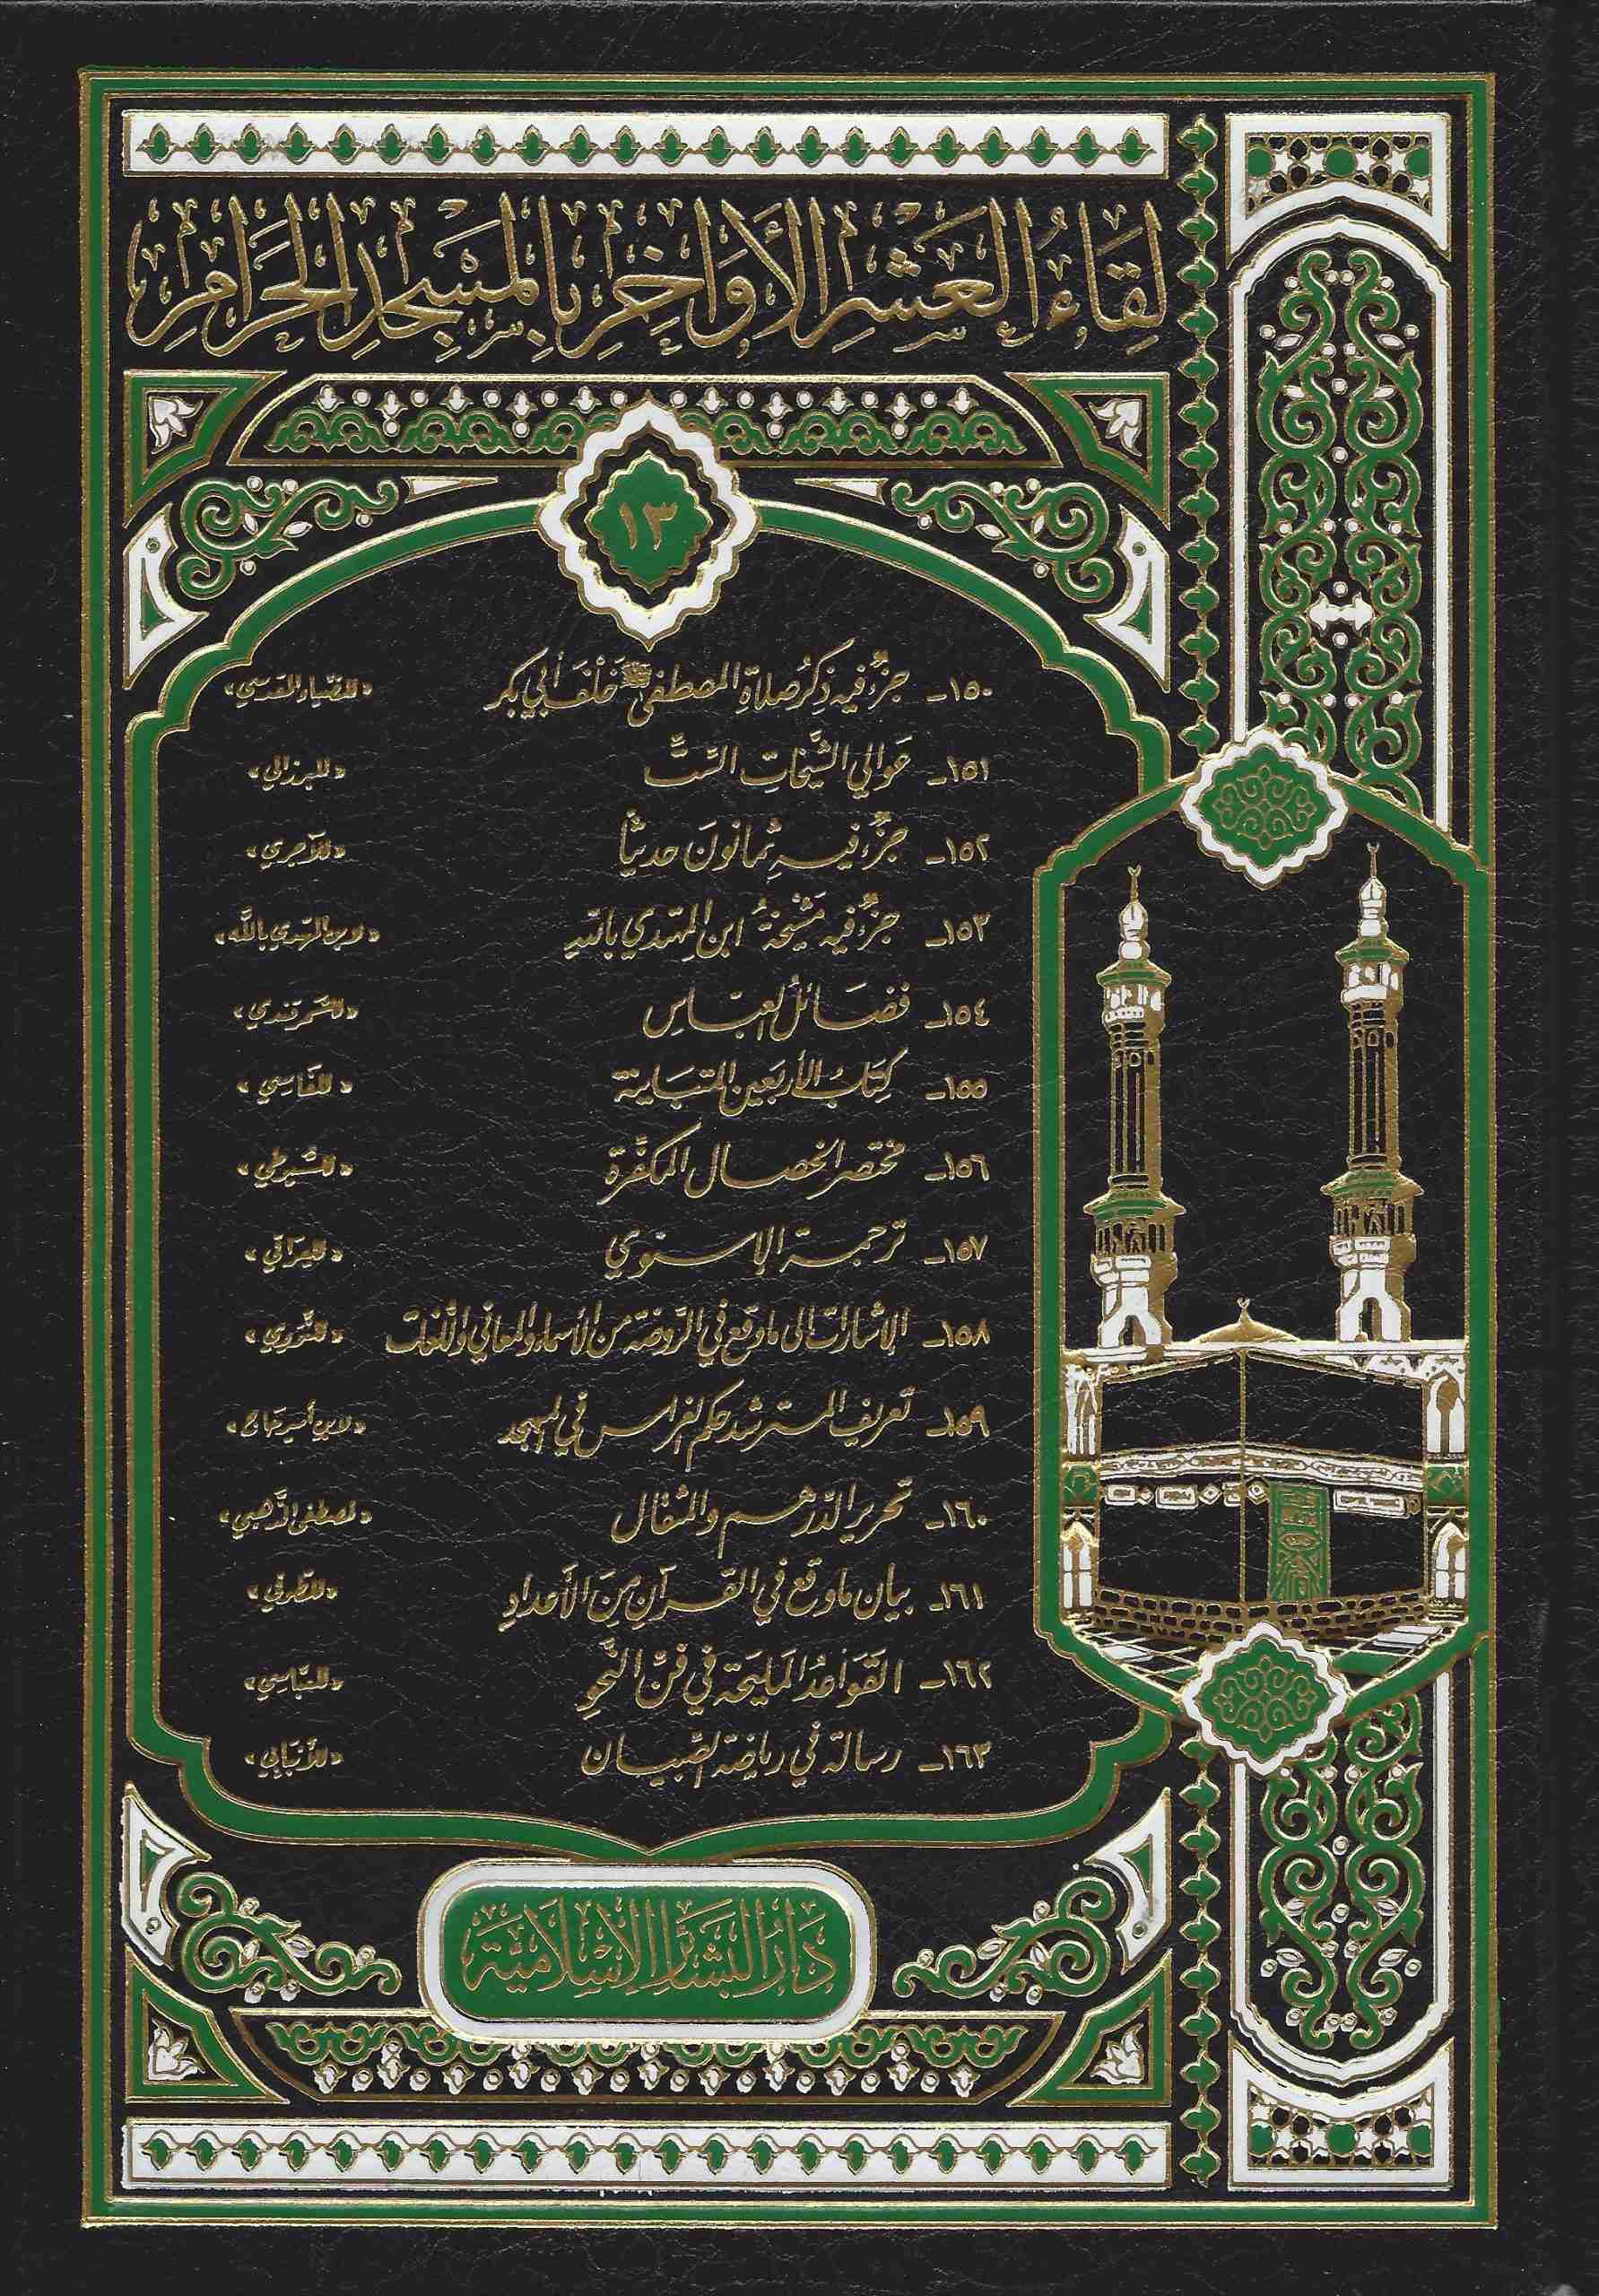 لِقَاءُ العَشْرِ الأَوَاخِرِ بِالمَسْجِدِ الحَرَامِ
١٣
١٥٠ـ جزءٌ فيه ذِكرُ صلاة المصطفى ﷺ خَلْفَ أبي بكر «للضّياء المقدسي»
١٥١ـ عَوالي الشَّيخات السِّتِّ «للبرزالي»
١٥٢ـ جزءٌ فيه ثمانونَ حديثاً «للآجري»
١٥٣ـ جزءٌ فيه مَشْيَخةُ ابن المهتدي بالله «لابن المهتدي باللَّه»
١٥٤ـ فضائلُ العبّاسِ «للسَّمرقندي»
١٥٥ـ كِتَابُ الأربَعين المتبَاينة «للفَاسِي»
١٥٦ـ مختصر الخصال المكفِّرة «للسُّيوطي»
١٥٧ـ ترجمة الإسنوي «للعِراقي»
١٥٨ـ الإشارات الى ما وقع في الرَّوضة من الأسماء والمعاني واللُّغات «للنَّووي»
١٥٩ـ تعريف المسترشد حكم الغراس في المسجد «لابن أمير حاج»
١٦٠ـ تحرير الدِّرهم والمثقال «لمصطفى الذَّهبي»
١٦١ـ بيان ما وقع في القرآن مِنَ الأَعدادِ
١٦٢ـ القَوَاعدُ المَليحَة في فنّ النَّحْوِ
١٦٣ـ رسالة في رياضة الصِّبيان «للأَنبَابي»
دَارُ البَشَائِرِ الإِسْلَامِيَّة